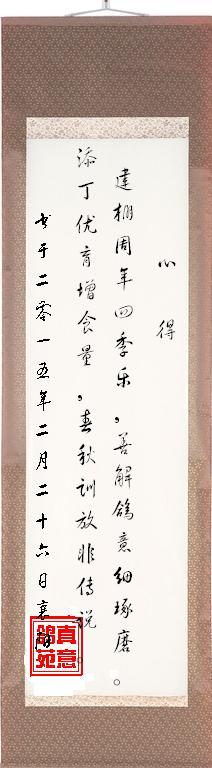 心得
建棚周年四季乐，善解鸽意细琢磨。
添丁优育增食量，春秋训放非传说。
书于二零一五年二月二十六日
真意鸽苑